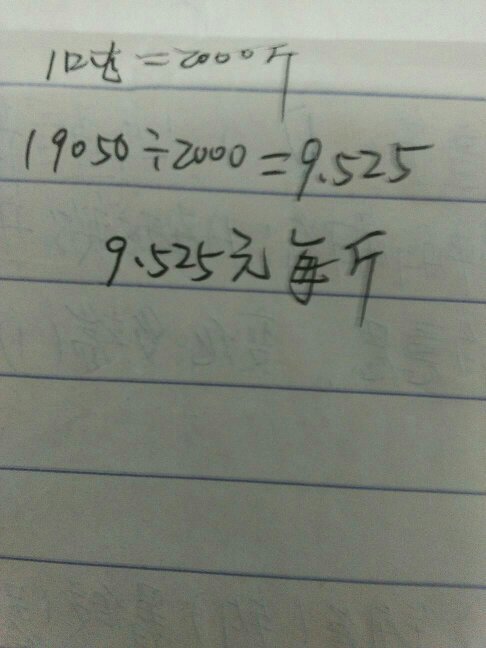 1吨=2000斤
19050÷2000=9.525
9.525元每斤